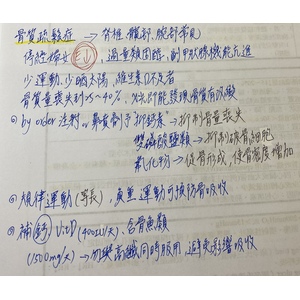 骨質疏鬆症 → 脊椎、髖部、腕部常見
停經婦女(E↓), 過量類固醇、副甲狀腺機能亢進
少運動、少曬太陽, 維生素D不足者
骨質量喪失到25~40%, X光才能發現骨質有吸收
① by order 注射、鼻噴劑予抑鈣素→抑制骨量喪失
雙磷酸鹽類→抑制破骨細胞
氟化物→促骨形成, 使骨密度增加
② 規律運動(等長), 負重運動可預防骨吸收
③ 補鈣、Vit D (400IU/天)、含骨魚類
(1500mg/天)→勿與高纖同時服用, 避免影響吸收